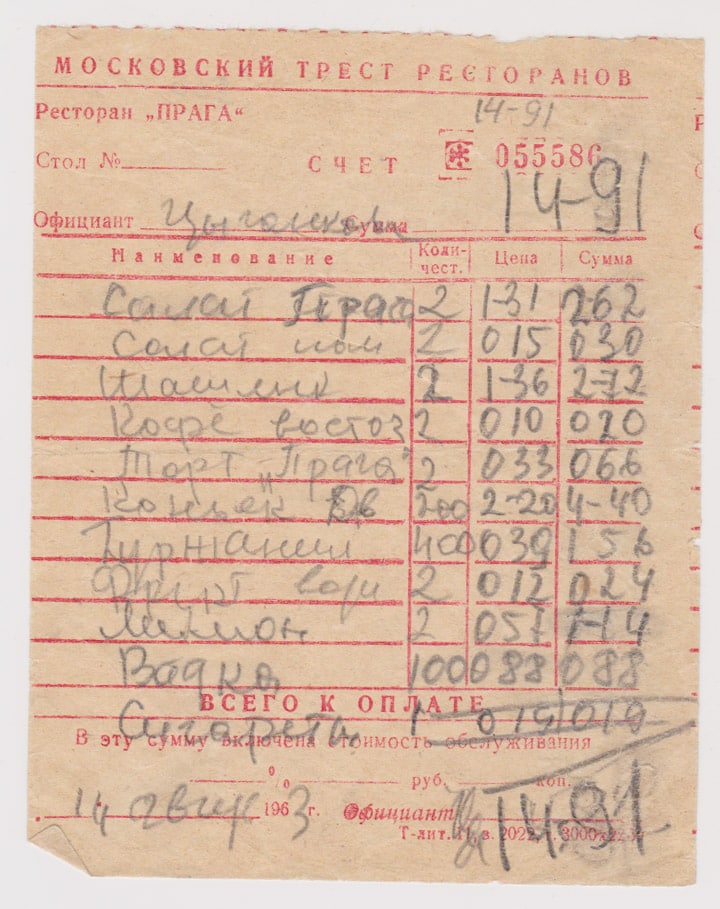 МОСКОВСКИЙ ТРЕСТ РЕСТОРАНОВ
Ресторан „ПРАГА“ 14-91
Стол № СЧЕТ 055586
14-91
Официант Цыганкова Сумма
Наименование Коли-чест. Цена Сумма
Салат Прага 2 1-31 2-62
Салат пом 2 015 030
Шашлык 2 1-36 2-72
Кофе восточ 2 010 020
Торт „Прага“ 2 033 066
Коньяк 200 2-20 4-40
Гурджаани 400 039 156
Фрукт воды 2 012 024
Лимон 2 057 1-14
Водка 100 088 088
ВСЕГО К ОПЛАТЕ
Сигареты 1 019 019
В эту сумму включена стоимость обслуживания
% руб. коп.
14-91
14 август 1963 г. Официант
Т-лит. з. 2022 3000